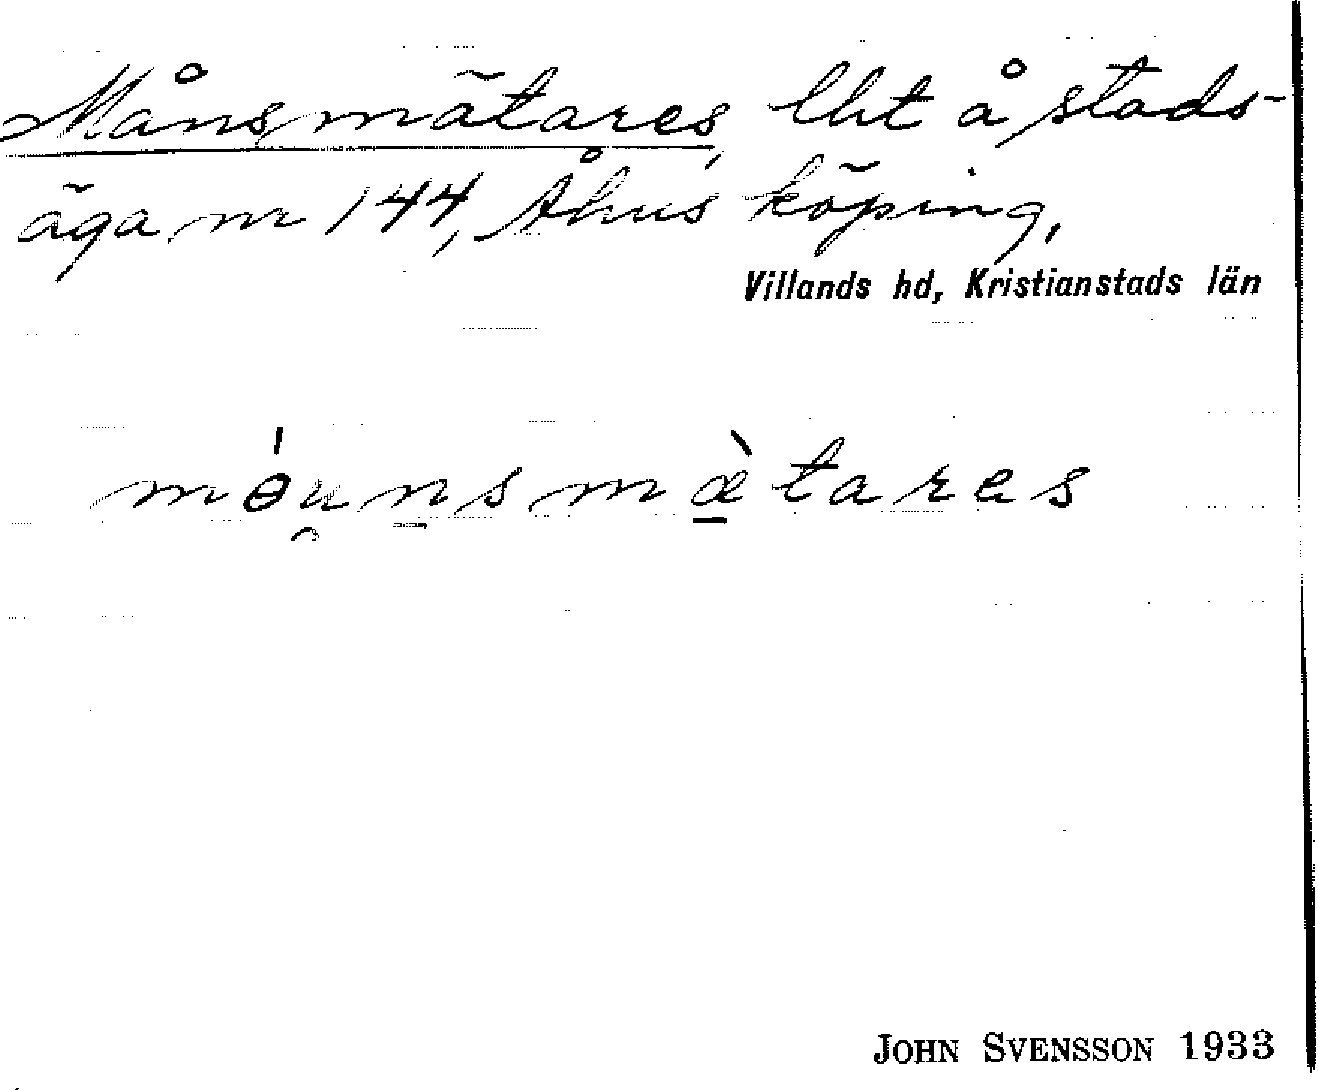 Månsmätares, lht å stads-
äga nr 144, Åhus köping,
Villands hd, Kristianstads län
mə́u̯n̠smæ̠̀tares
JOHN SVENSSON 1933